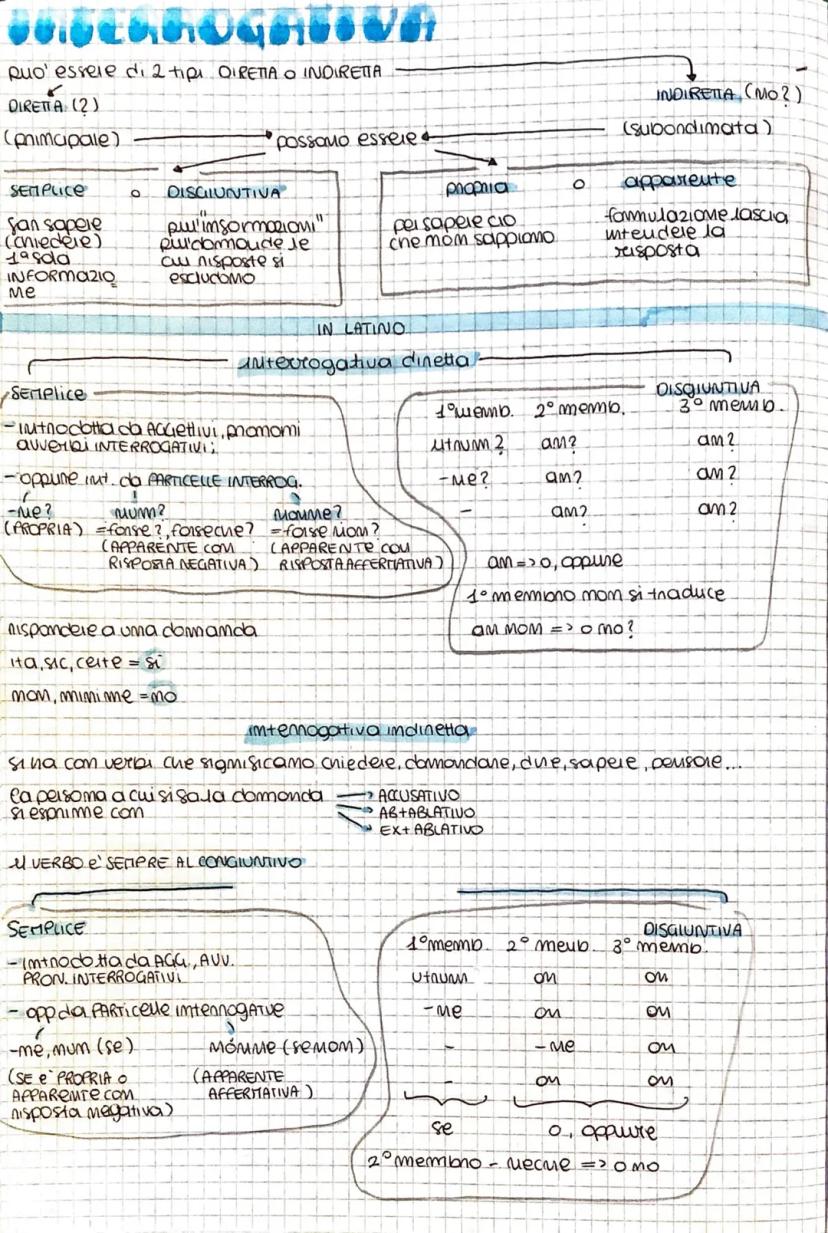 INTERROGATIVA
può essere di 2 tipi DIRETTA O INDIRETTA
DIRETTA (?)
INDIRETTA (NO?)
(principale)
possono essere
(subordinata)
SEMPLICE o DISGIUNTIVA
fan sapere
(chiedere)
1a sola
INFORMAZIO
NE
più "informazioni"
più domande le
cui risposte si
escludono
propria o apparente
per sapere ciò
che non sappiamo
formulazione lascia
intendere la
risposta
IN LATINO
interrogativa diretta
SEMPLICE
- introdotta da AGGETTIVI, pronomi
avverbi INTERROGATIVI;
- oppure int. da PARTICELLE INTERROG.
-NE? NUM? NONNE?
(PROPRIA) =forse?, forseche? =forse non?
(APPARENTE CON (APPARENTE CON
RISPOSTA NEGATIVA) RISPOSTA AFFERMATIVA)
DISGIUNTIVA
1° memb. 2° memb. 3° memb.
utrum? an? an?
-ne? an? an?
- an? an?
an => o, oppure
1° membro non si traduce
an non => o no?
rispondere a una domanda
ita, sic, certe = sì
non, minime = no
interrogativa indiretta
si ha con verbi che significano chiedere, domandare, dire, sapere, pensare...
la persona a cui si fa la domanda
si esprime con
ACCUSATIVO
AB+ABLATIVO
EX+ABLATIVO
il VERBO è SEMPRE AL CONGIUNTIVO
SEMPLICE
- introdotta da AGG., AVV.
PRON. INTERROGATIVI
- opp da PARTICELLE interrogative
-ne, num (se) Nonne (se non)
(SE è PROPRIA O (APPARENTE
APPARENTE CON AFFERMATIVA)
risposta negativa)
DISGIUNTIVA
1° memb. 2° memb. 3° memb.
utrum an an
-ne an an
- -ne an
- an an
se o, oppure
2° membro - necne => o no